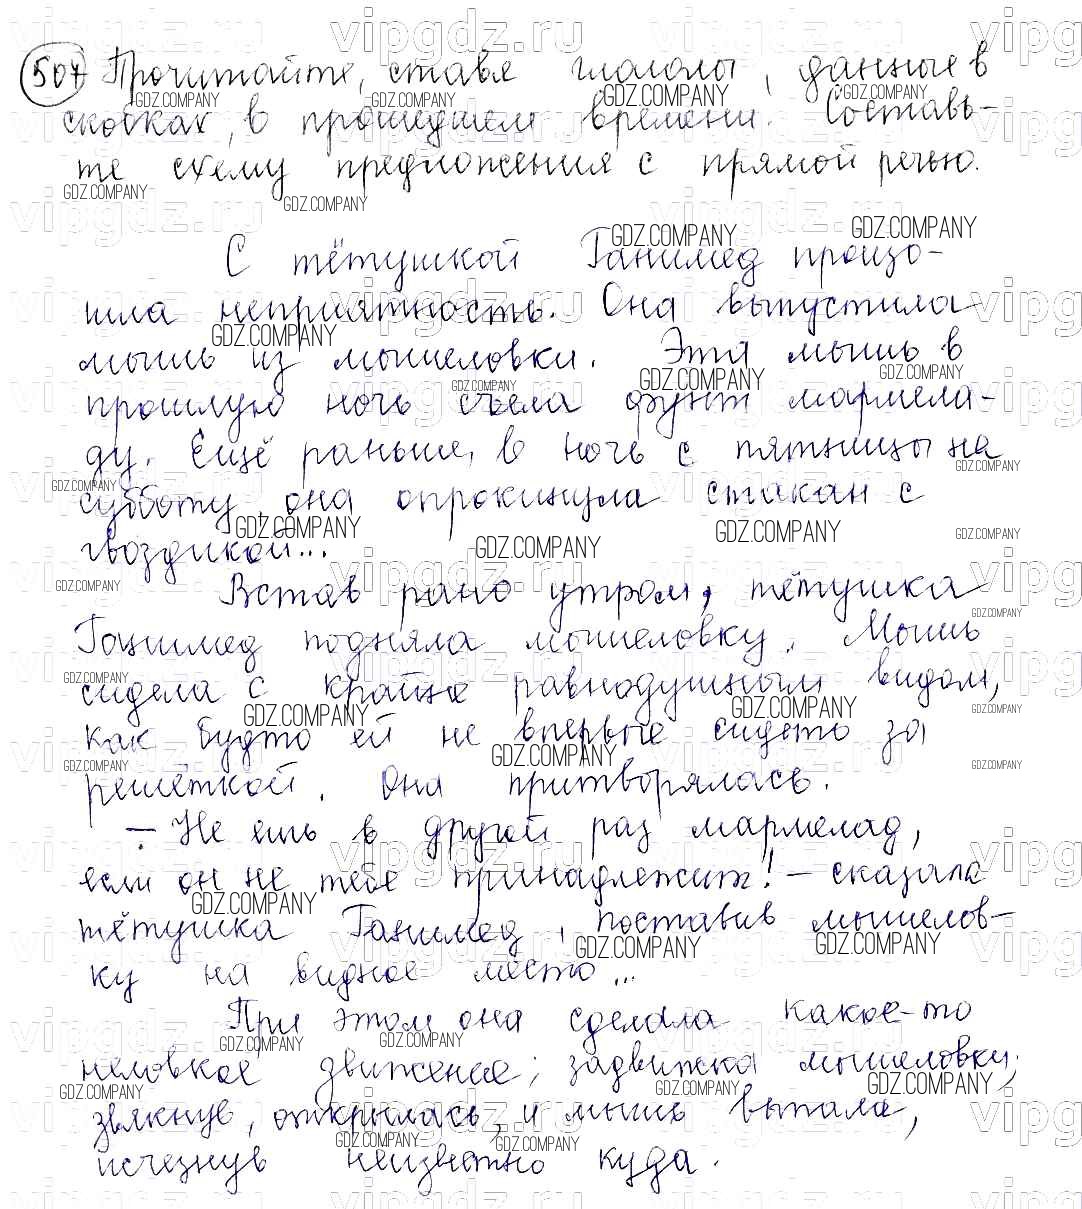 507 Прочитайте, ставя глаголы, данные в
скобках, в прошедшем времени. Составь-
те схему предложения с прямой речью.
С тётушкой Ганимед произо-
шла неприятность. Она выпустила
мышь из мышеловки. Эта мышь в
прошлую ночь съела фунт мармела-
ду. Ещё раньше, в ночь с пятницы на
субботу, она опрокинула стакан с
гвоздикой...
Встав рано утром, тётушка
Ганимед подняла мышеловку. Мышь
сидела с крайне равнодушным видом,
как будто ей не впервые сидеть за
решёткой. Она притворялась.
– Не ешь в другой раз мармелад,
если он не тебе принадлежит! – сказала
тётушка Ганимед, поставив мышелов-
ку на видное место...
При этом она сделала какое-то
неловкое движение; задвижка мышеловки,
звякнув, открылась, и мышь выпала,
исчезнув неизвестно куда.